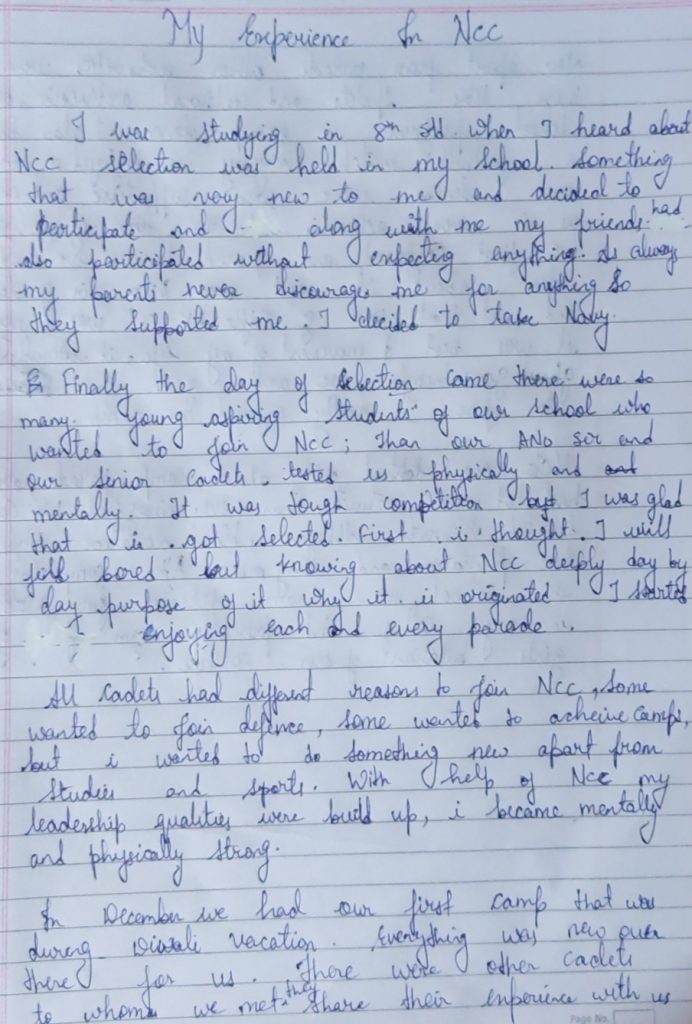 My Experience In Ncc
I was studying in 8th std. When I heard about
Ncc selection was held in my School. Something
that was very new to me and decided to
participate and along with me my friends had
also participated without expecting anything. As always
my parents never discourage me for anything So
they Supported me. I decided to take Navy.
Finally the day of Selection came there were so
many young aspiring Students of our school who
wanted to join Ncc; than our ANO sir and
our senior Cadets tested us physically and and
mentally. It was tough competition but I was glad
that i got selected. First i thought I will
fell bored but knowing about Ncc deeply day by
day purpose of it why it is originated I started
enjoying each and every parade.
All Cadets had different reasons to join Ncc, Some
wanted to join defence, some wanted to acheive camps,
but i wanted to do something new apart from
Studies and sports. With help of Ncc my
leadership qualities were build up, i became mentally
and physically strong.
In December we had our first camp that was
during Diwali vacation. Everything was new over
there for us. There were other cadets
to whom we met they share their experience with us
Page No.